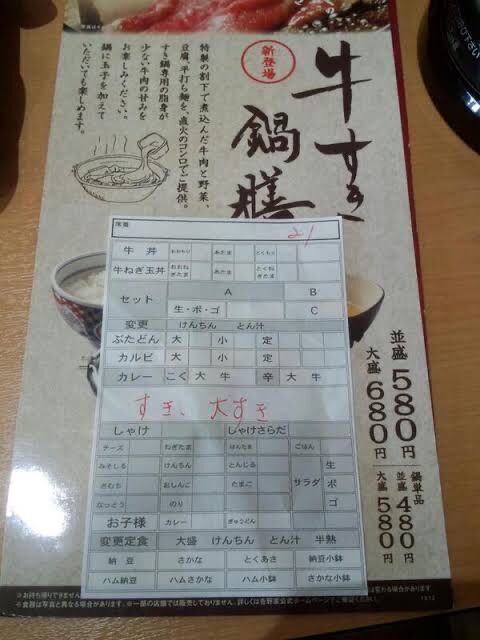 新登場
牛すき
鍋膳
特製の割下で煮込んだ牛肉と野菜、
豆腐、平打ち麺を、直火のコンロでご提供。
すき鍋専用の脂身が
少ない牛肉の甘みを
お楽しみください。
鍋に玉子を加えて
いただいても楽しめます。
並盛 580円
大盛 680円
鍋単品
並盛 480円
大盛 580円
席番 21
牛丼 あたま
牛ねぎ玉丼 あたま
セット A B
生・ポ・ゴ C
変更 けんちん とん汁
ぶたどん 大 小 定
カルビ 大 小 定
カレー こく 大 牛 辛 大 牛
すき、大すき
しゃけ しゃけさらだ
チーズ ねぎたま はんたま ごはん
みそしる けんちん とんじる サラダ 生
きむち おしんこ たまご ポ
なっとう のり ゴ
お子様 カレー ぎゅうどん
変更定食 大盛 けんちん とん汁 半熟
納豆 さかな とくあさ 納豆小鉢
ハム納豆 ハムさかな ハム小鉢 さかな小鉢
※食器は写真と異なる場合があります。※一部の店舗では販売しておりません。詳しくは吉野家公式ホームページでご確認ください。